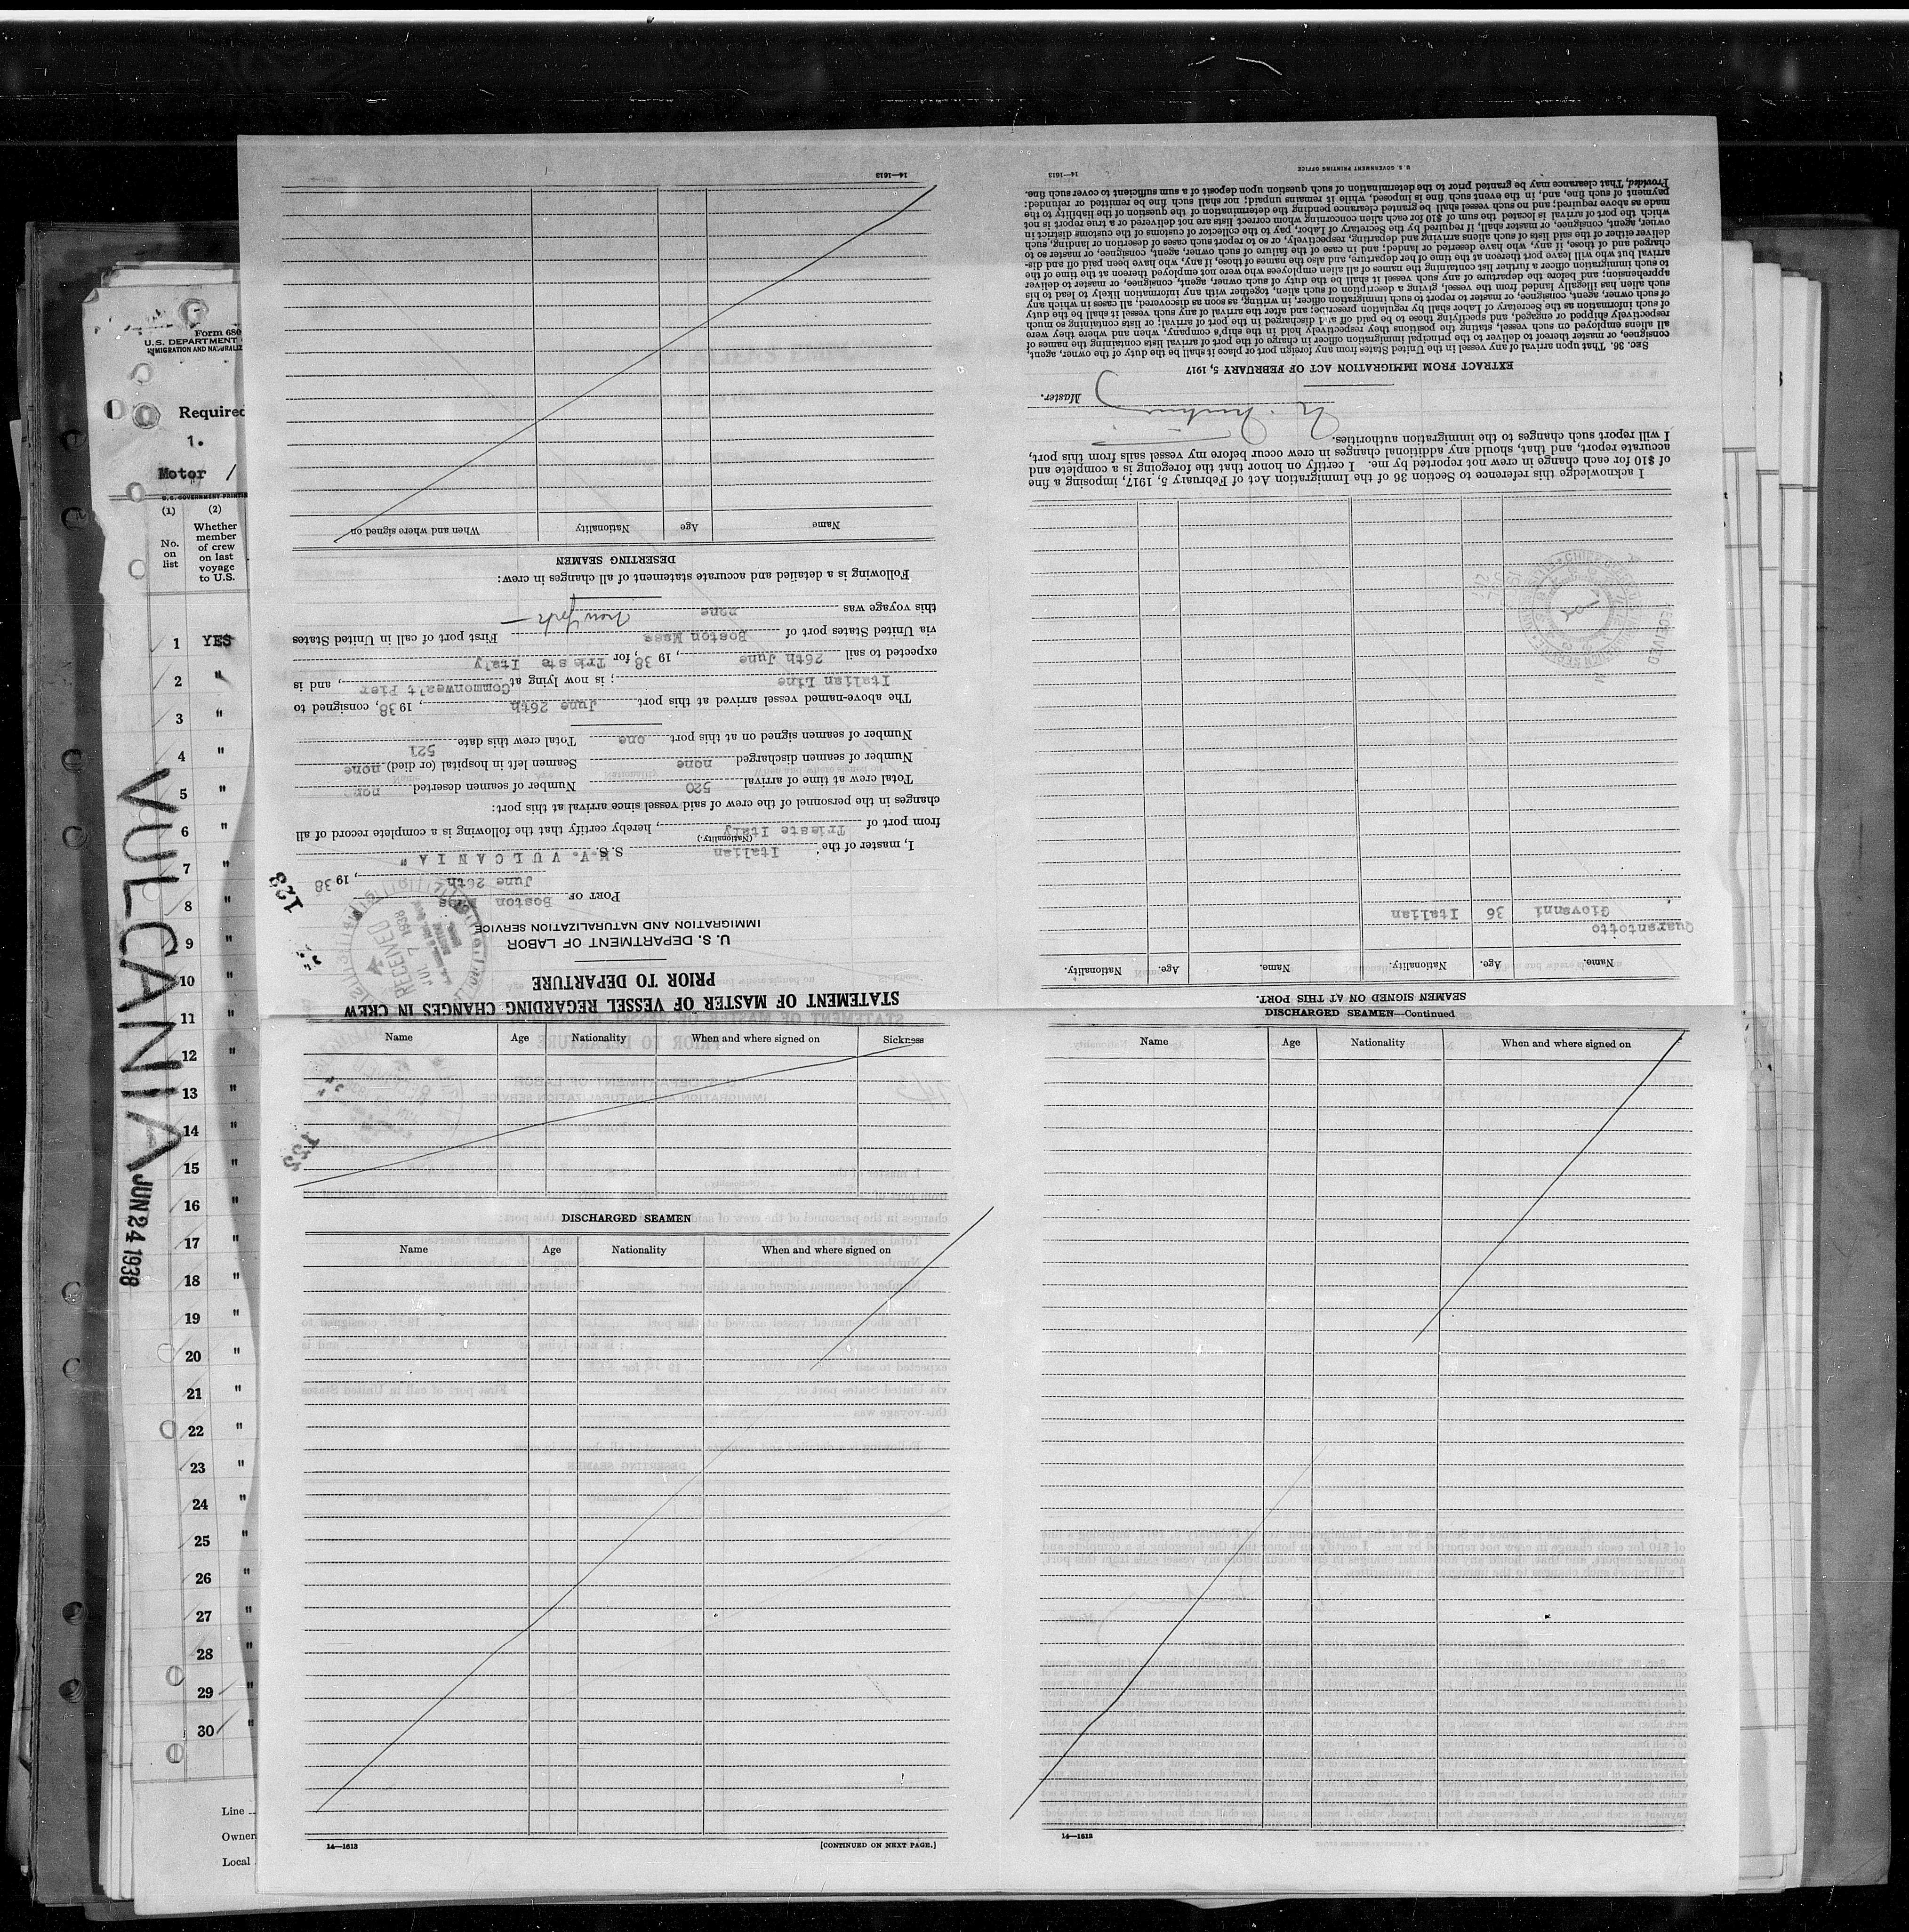 Form 680
U.S. DEPARTMENT
IMMIGRATION AND NATURALIZ
Required
1.
Motor /
U.S. GOVERNMENT PRINTIN
(1) (2)
No. on list
Whether member of crew on last voyage to U.S.
1 YES
2 "
3 "
4 "
5 "
6 "
7 "
8 "
9 "
10 "
11 "
12 "
13 "
14 "
15 "
16 "
17 "
18 "
19 "
20 "
21 "
22 "
23 "
24 "
25 "
26 "
27 "
28 "
29 "
30 "
Line
Owner
Local
VULCANIA JUN 24 1938
STATEMENT OF MASTER OF VESSEL REGARDING CHANGES IN CREW
PRIOR TO DEPARTURE
U. S. DEPARTMENT OF LABOR
IMMIGRATION AND NATURALIZATION SERVICE
RECEIVED
JUL 7 1938
123
PORT OF Boston Mass
June 26th, 19 38
I, master of the Italian S.S. M.V. VULCANIA"
(Nationality.)
from port of Trieste Italy, hereby certify that the following is a complete record of all
changes in the personnel of the crew of said vessel since arrival at this port:
Total crew at time of arrival 520 Number of seamen deserted none
Number of seamen discharged none Seamen left in hospital (or died) none
Number of seamen signed on at this port one Total crew this date 521
The above-named vessel arrived at this port June 26th, 1938, consigned to
Italian Line; is now lying at Commonwealt Pier, and is
expected to sail 26th June, 19 38, for Trieste Italy
via United States port of Boston Mass First port of call in United States
this voyage was none New York
Following is a detailed and accurate statement of all changes in crew:
DESERTING SEAMEN
Name Age Nationality When and where signed on
14—1613
SEAMEN SIGNED ON AT THIS PORT.
Name. Age. Nationality. Name. Age. Nationality.
Quarantotto
Giovanni 36 Italian
RECEIVED
I acknowledge this reference to Section 36 of the Immigration Act of February 5, 1917, imposing a fine
of $10 for each change in crew not reported by me. I certify on honor that the foregoing is a complete and
accurate report, and that, should any additional changes in crew occur before my vessel sails from this port,
I will report such changes to the immigration authorities.
Master.
EXTRACT FROM IMMIGRATION ACT OF FEBRUARY 5, 1917
SEC. 36. That upon arrival of any vessel in the United States from any foreign port or place it shall be the duty of the owner, agent,
consignee, or master thereof to deliver to the principal immigration officer in charge of the port of arrival lists containing the names of
all aliens employed on such vessel, stating the positions they respectively hold in the ship's company, when and where they were
respectively shipped or engaged, and specifying those to be paid off and discharged in the port of arrival; or lists containing so much
of such information as the Secretary of Labor shall by regulation prescribe; and after the arrival of any such vessel it shall be the duty
of such owner, agent, consignee, or master to report to such immigration officer, in writing, as soon as discovered, all cases in which any
such alien has illegally landed from the vessel, giving a description of such alien, together with any information likely to lead to his
apprehension; and before the departure of any such vessel it shall be the duty of such owner, agent, consignee, or master to deliver
to such immigration officer a further list containing the names of all alien employees who were not employed thereon at the time of the
arrival but who will leave port thereon at the time of her departure, and also the names of those, if any, who have been paid off and dis-
charged and of those, if any, who have deserted or landed; and in case of the failure of such owner, agent, consignee, or master so to
deliver either of the said lists of such aliens arriving and departing, respectively, or so to report such cases of desertion or landing, such
owner, agent, consignee, or master shall, if required by the Secretary of Labor, pay to the collector of customs of the customs district in
which the port of arrival is located the sum of $10 for each alien concerning whom correct lists are not delivered or a true report is not
made as above required; and no such vessel shall be granted clearance pending the determination of the question of the liability to the
payment of such fine, and, in the event such fine is imposed, while it remains unpaid; nor shall such fine be remitted or refunded:
Provided, That clearance may be granted prior to the determination of such question upon deposit of a sum sufficient to cover such fine.
14—1613 U. S. GOVERNMENT PRINTING OFFICE
Name Age Nationality When and where signed on Sickness
DISCHARGED SEAMEN
Name Age Nationality When and where signed on
14—1613 [CONTINUED ON NEXT PAGE.]
DISCHARGED SEAMEN—Continued
Name Age Nationality When and where signed on
14—1613